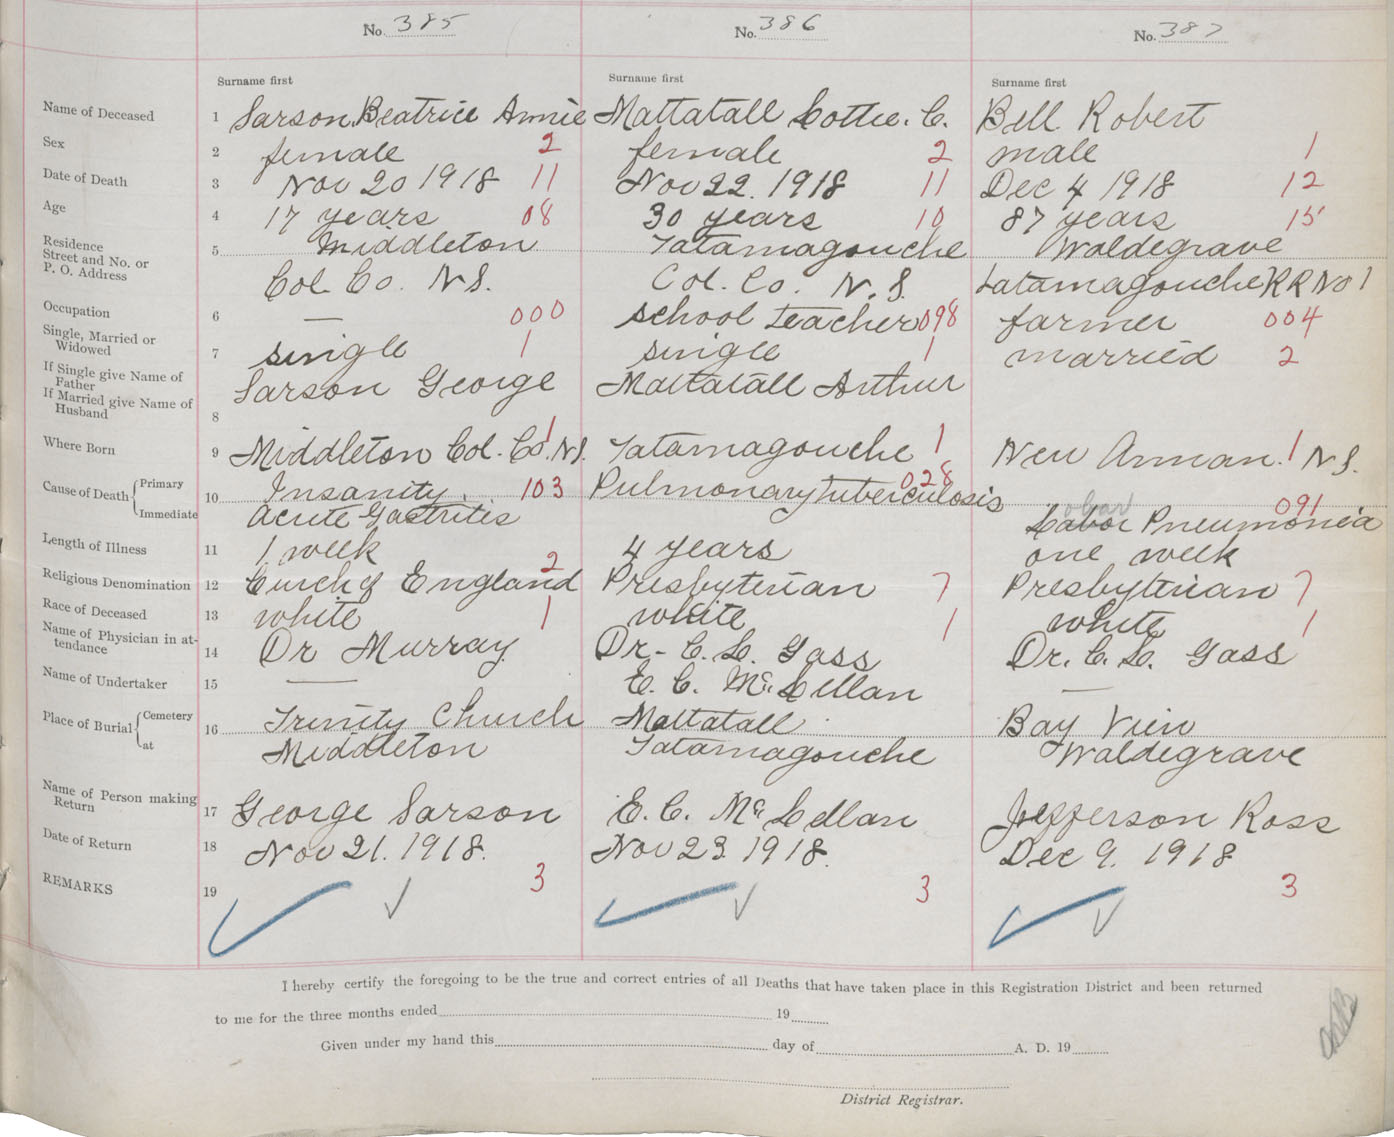 No. 385 No. 386 No. 387
Surname first Surname first Surname first
Name of Deceased 1 Sarson, Beatrice Annie Mattatall Lottie. C. Bell Robert
Sex 2 female 2 female 2 male 1
Date of Death 3 Nov 20 1918 11 Nov 22. 1918 11 Dec 4 1918 12
Age 4 17 years 08 30 years 10 87 years 15
Residence
Street and No. or 5 Middleton Tatamagouche Waldegrave
P. O. Address Col. Co. N S. Col. Co. N. S. Tatamagouche R R No 1
Occupation 6 — 000 school teacher 098 farmer 004
Single, Married or
Widowed 7 single 1 single 1 married 2
If Single give Name of
Father Sarson George Mattatall Arthur
If Married give Name of
Husband 8
Where Born 9 Middleton Col. Co. N S. 1 Tatamagouche 1 New Annan. 1 N S.
Cause of Death { Primary 10 Insanity. 103 Pulmonary tuberculosis 028
Immediate Acute Gastritis Labor obar Pneumonia 091
Length of Illness 11 1 week 4 years one week
Religious Denomination 12 Curch of England 2 Presbyterian 7 Presbyterian 7
Race of Deceased 13 white 1 white 1 white 1
Name of Physician in at-
tendance 14 Dr Murray Dr. C. L. Gass Dr. C. L. Gass
Name of Undertaker 15 — E. C. McLellan —
Place of Burial { Cemetery 16 Trinity Church Mattatall Bay View
at Middleton Tatamagouche Waldegrave
Name of Person making
Return 17 George Sarson E. C. McLellan Jefferson Ross
Date of Return 18 Nov 21. 1918. Nov 23. 1918. Dec 9. 1918
REMARKS 19 3 3 3
I hereby certify the foregoing to be the true and correct entries of all Deaths that have taken place in this Registration District and been returned
to me for the three months ended 19
Given under my hand this day of A. D. 19
District Registrar.